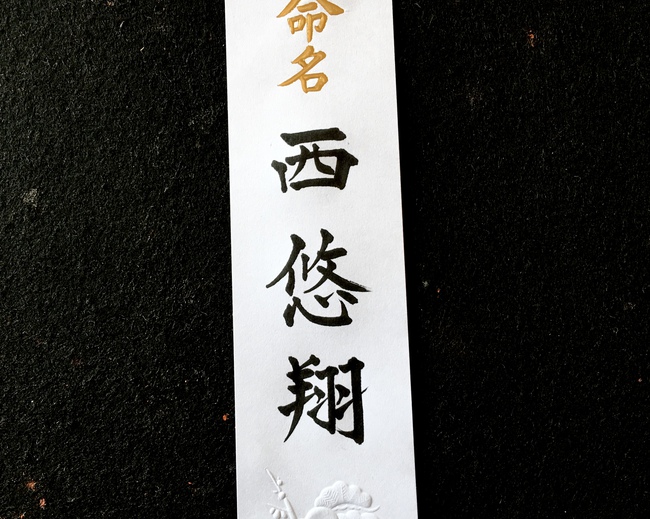 命名
西
悠翔